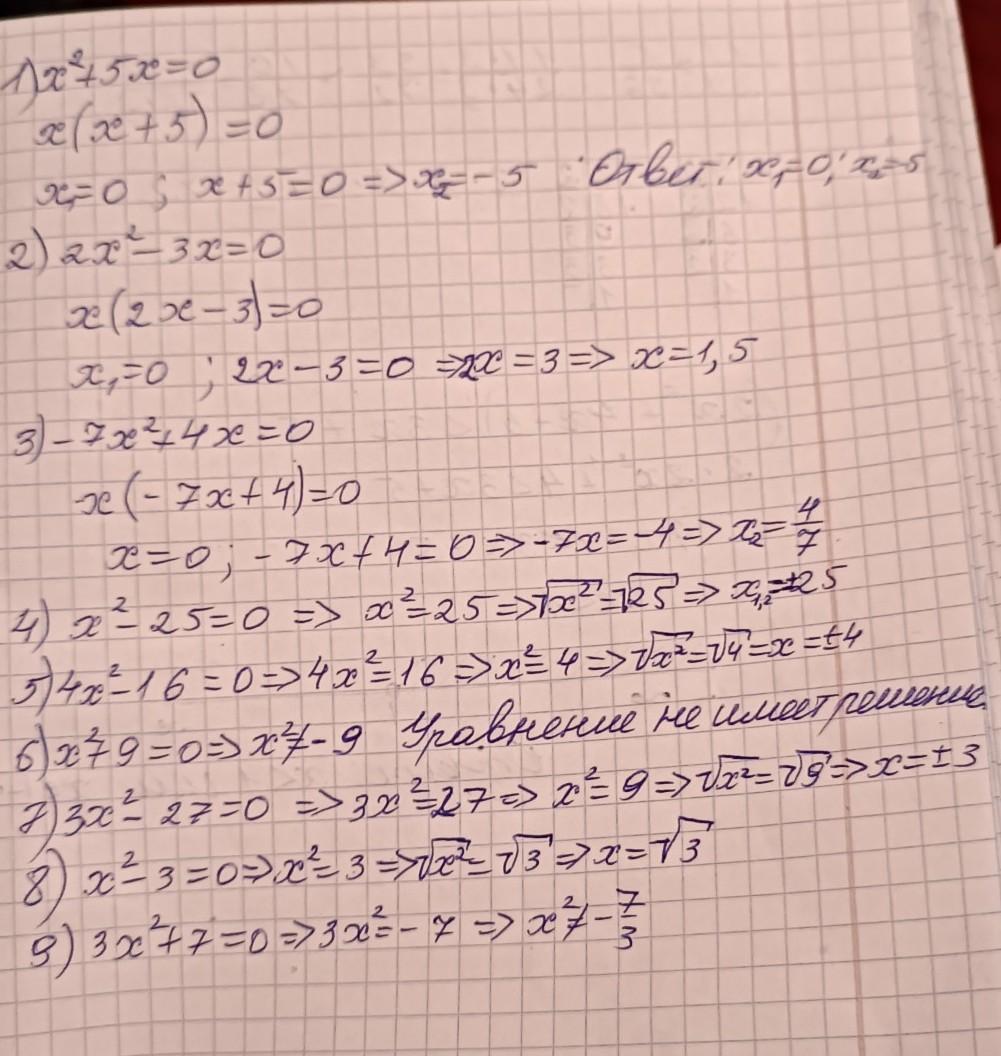 1) x²+5x=0
x(x+5)=0
x₁=0 ; x+5=0 => x₂=-5 Ответ: x₁=0; x₂=5
2) 2x²-3x=0
x(2x-3)=0
x₁=0 ; 2x-3=0 =>2x=3=> x=1,5
3) -7x²+4x=0
x(-7x+4)=0
x=0; -7x+4=0=>-7x=-4=> x₂=4/7
4) x²-25=0 => x²=25=>√x²=√25=> x₁,₂=±25
5) 4x²-16=0=>4x²=16=>x²=4=>√x²=√4=x=±4
6) x²+9=0=>x²≠-9 Уравнение не имеет решение
7) 3x²-27=0 =>3x²=27=> x²=9=>√x²=√9=>x=±3
8) x²-3=0=>x²=3=>√x²=√3=>x=√3
9) 3x²+7=0=>3x²=-7 => x²≠-7/3